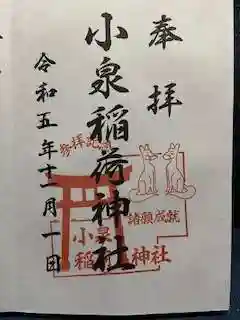 奉拝
小泉稲荷神社
令和五年十一月一日
参拝記念
諸願成就
小泉
稲荷神社